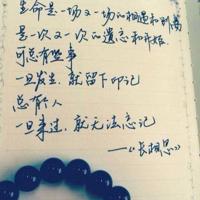 生命是一场又一场的相遇和别离
是一次又一次的遗忘和开始
可总有些事
一旦发生，就留下印记
总有个人
一旦来过，就无法忘记
——《长相思》